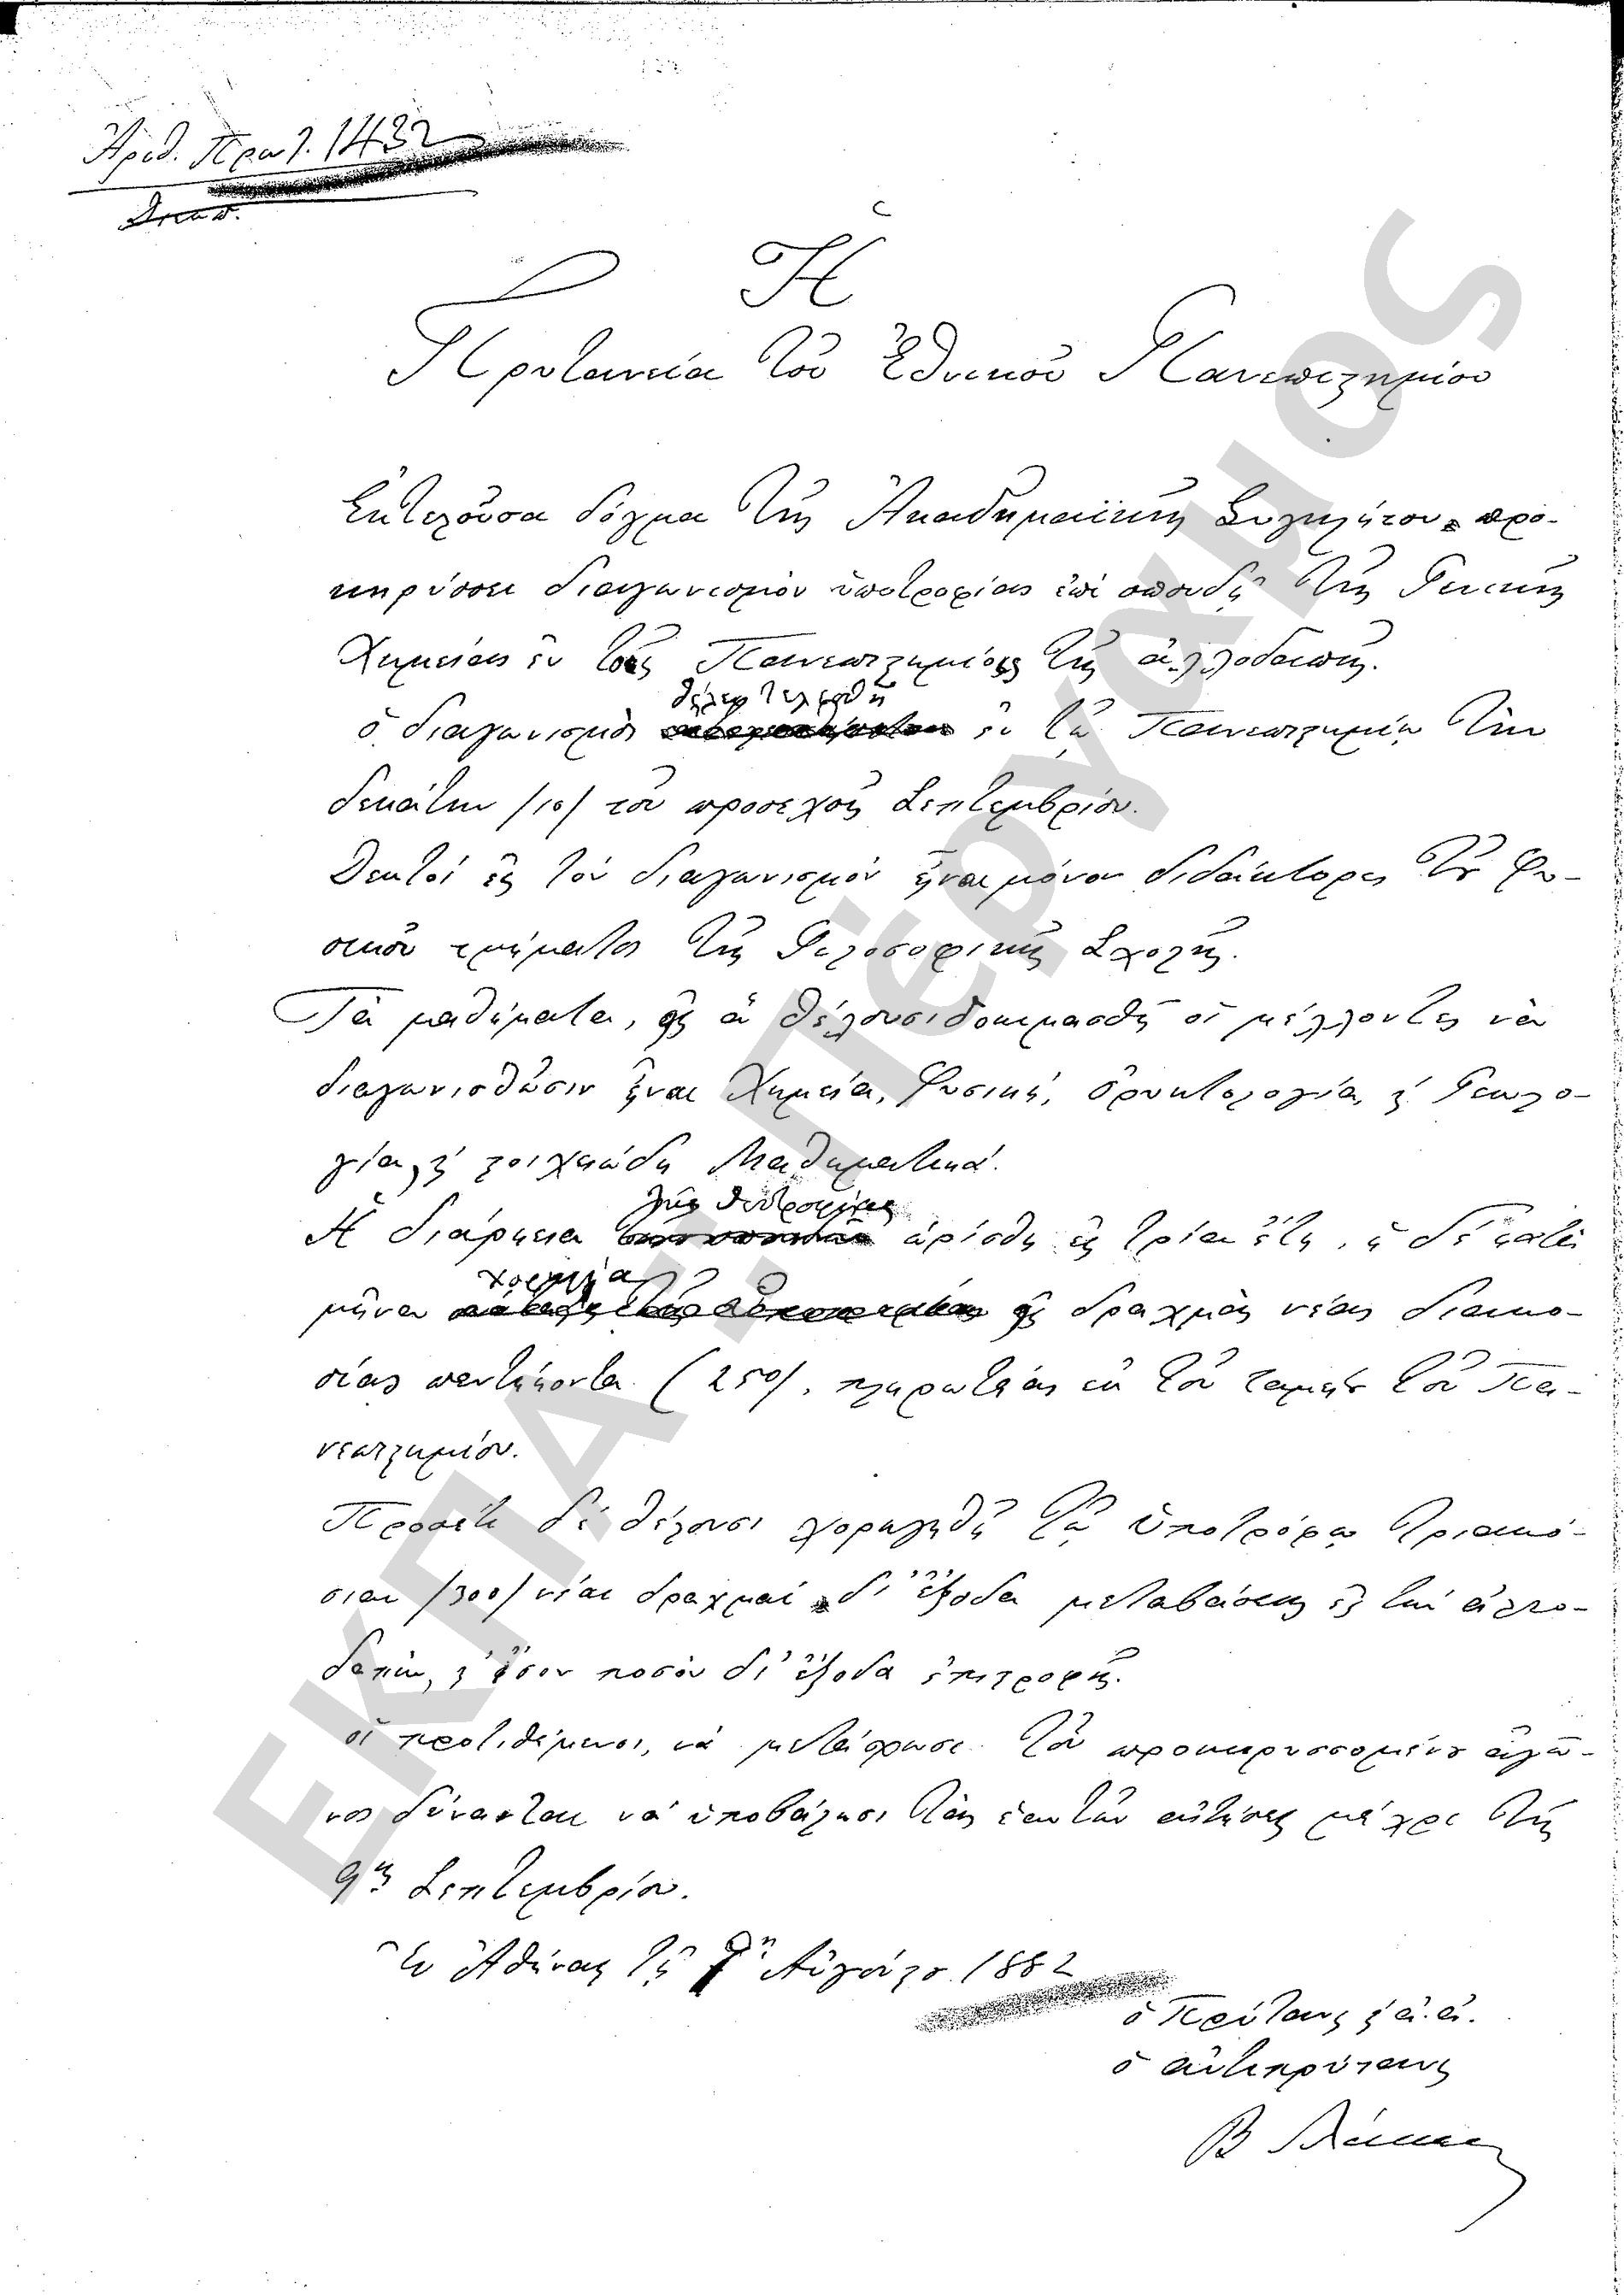 Ἀριθ. Πρωτ. 1432
Ἡ
Πρυτανεία τοῦ Ἐθνικοῦ Πανεπιστημίου
Ἐκτελοῦσα δόγμα τῆς Ἀκαδημαϊκῆς Συγκλήτου προ-
κηρύσσει διαγωνισμὸν ὑποτροφίας ἐπὶ σπουδῇ τῆς Γενικῆς
Χημείας ἐν τοῖς Πανεπιστημίοις τῆς ἀλλοδαπῆς.
θέλει τελεσθῆ
ὁ διαγωνισμὸς ἐν τῷ Πανεπιστημίῳ τὴν
δεκάτην /10/ τοῦ προσεχοῦς Σεπτεμβρίου.
Δεκτοὶ εἰς τὸν διαγωνισμὸν εἶναι μόνον διδάκτορες τοῦ Φυ-
σικοῦ τμήματος τῆς Φιλοσοφικῆς Σχολῆς.
Τὰ μαθήματα, εἰς ἃ θέλουσι δοκιμασθῆ οἱ μέλλοντες νὰ
διαγωνισθῶσιν εἶναι Χημεία, Φυσική, ὀρυκτολογία, καὶ Γεωλο-
γία, καὶ στοιχειώδη Μαθηματικά.
τῆς ὑποτροφίας
Ἡ διάρκεια ὡρίσθη εἰς τρία ἔτη, ἡ δὲ κατὰ
χορηγία
μῆνα εἰς δραχμὰς νέας διακο-
σίας πεντήκοντα (250/, πληρωτέας ἐκ τοῦ ταμείου τοῦ Πα-
νεπιστημίου.
Προσέτι δὲ θέλουσι χορηγηθῆ τῷ ὑποτρόφῳ τριακό-
σιαι /300/ νέαι δραχμαὶ δι' ἔξοδα μεταβάσεως εἰς τὴν ἀλλο-
δαπήν, καὶ ἴσον ποσὸν δι' ἔξοδα ἐπιστροφῆς.
οἱ προτιθέμενοι, νὰ μετάσχωσι τοῦ προκηρυσσομένου ἀγῶ-
νος δύνανται νὰ ὑποβάλωσι τὰς ἑαυτῶν αἰτήσεις μέχρι τῆς
9ης Σεπτεμβρίου.
Ἐν Ἀθήναις τῇ Αὐγούστου 1882
ὁ Πρύτανις καὶ ἀ.ἀ.
ὁ ἀντιπρύτανις
Β Λάκων
ΕΚΠΑ - Πέργαμος